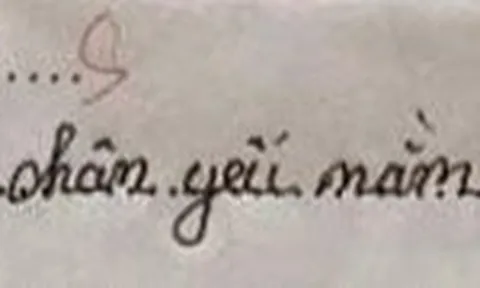 ....S
chân yếu nằm